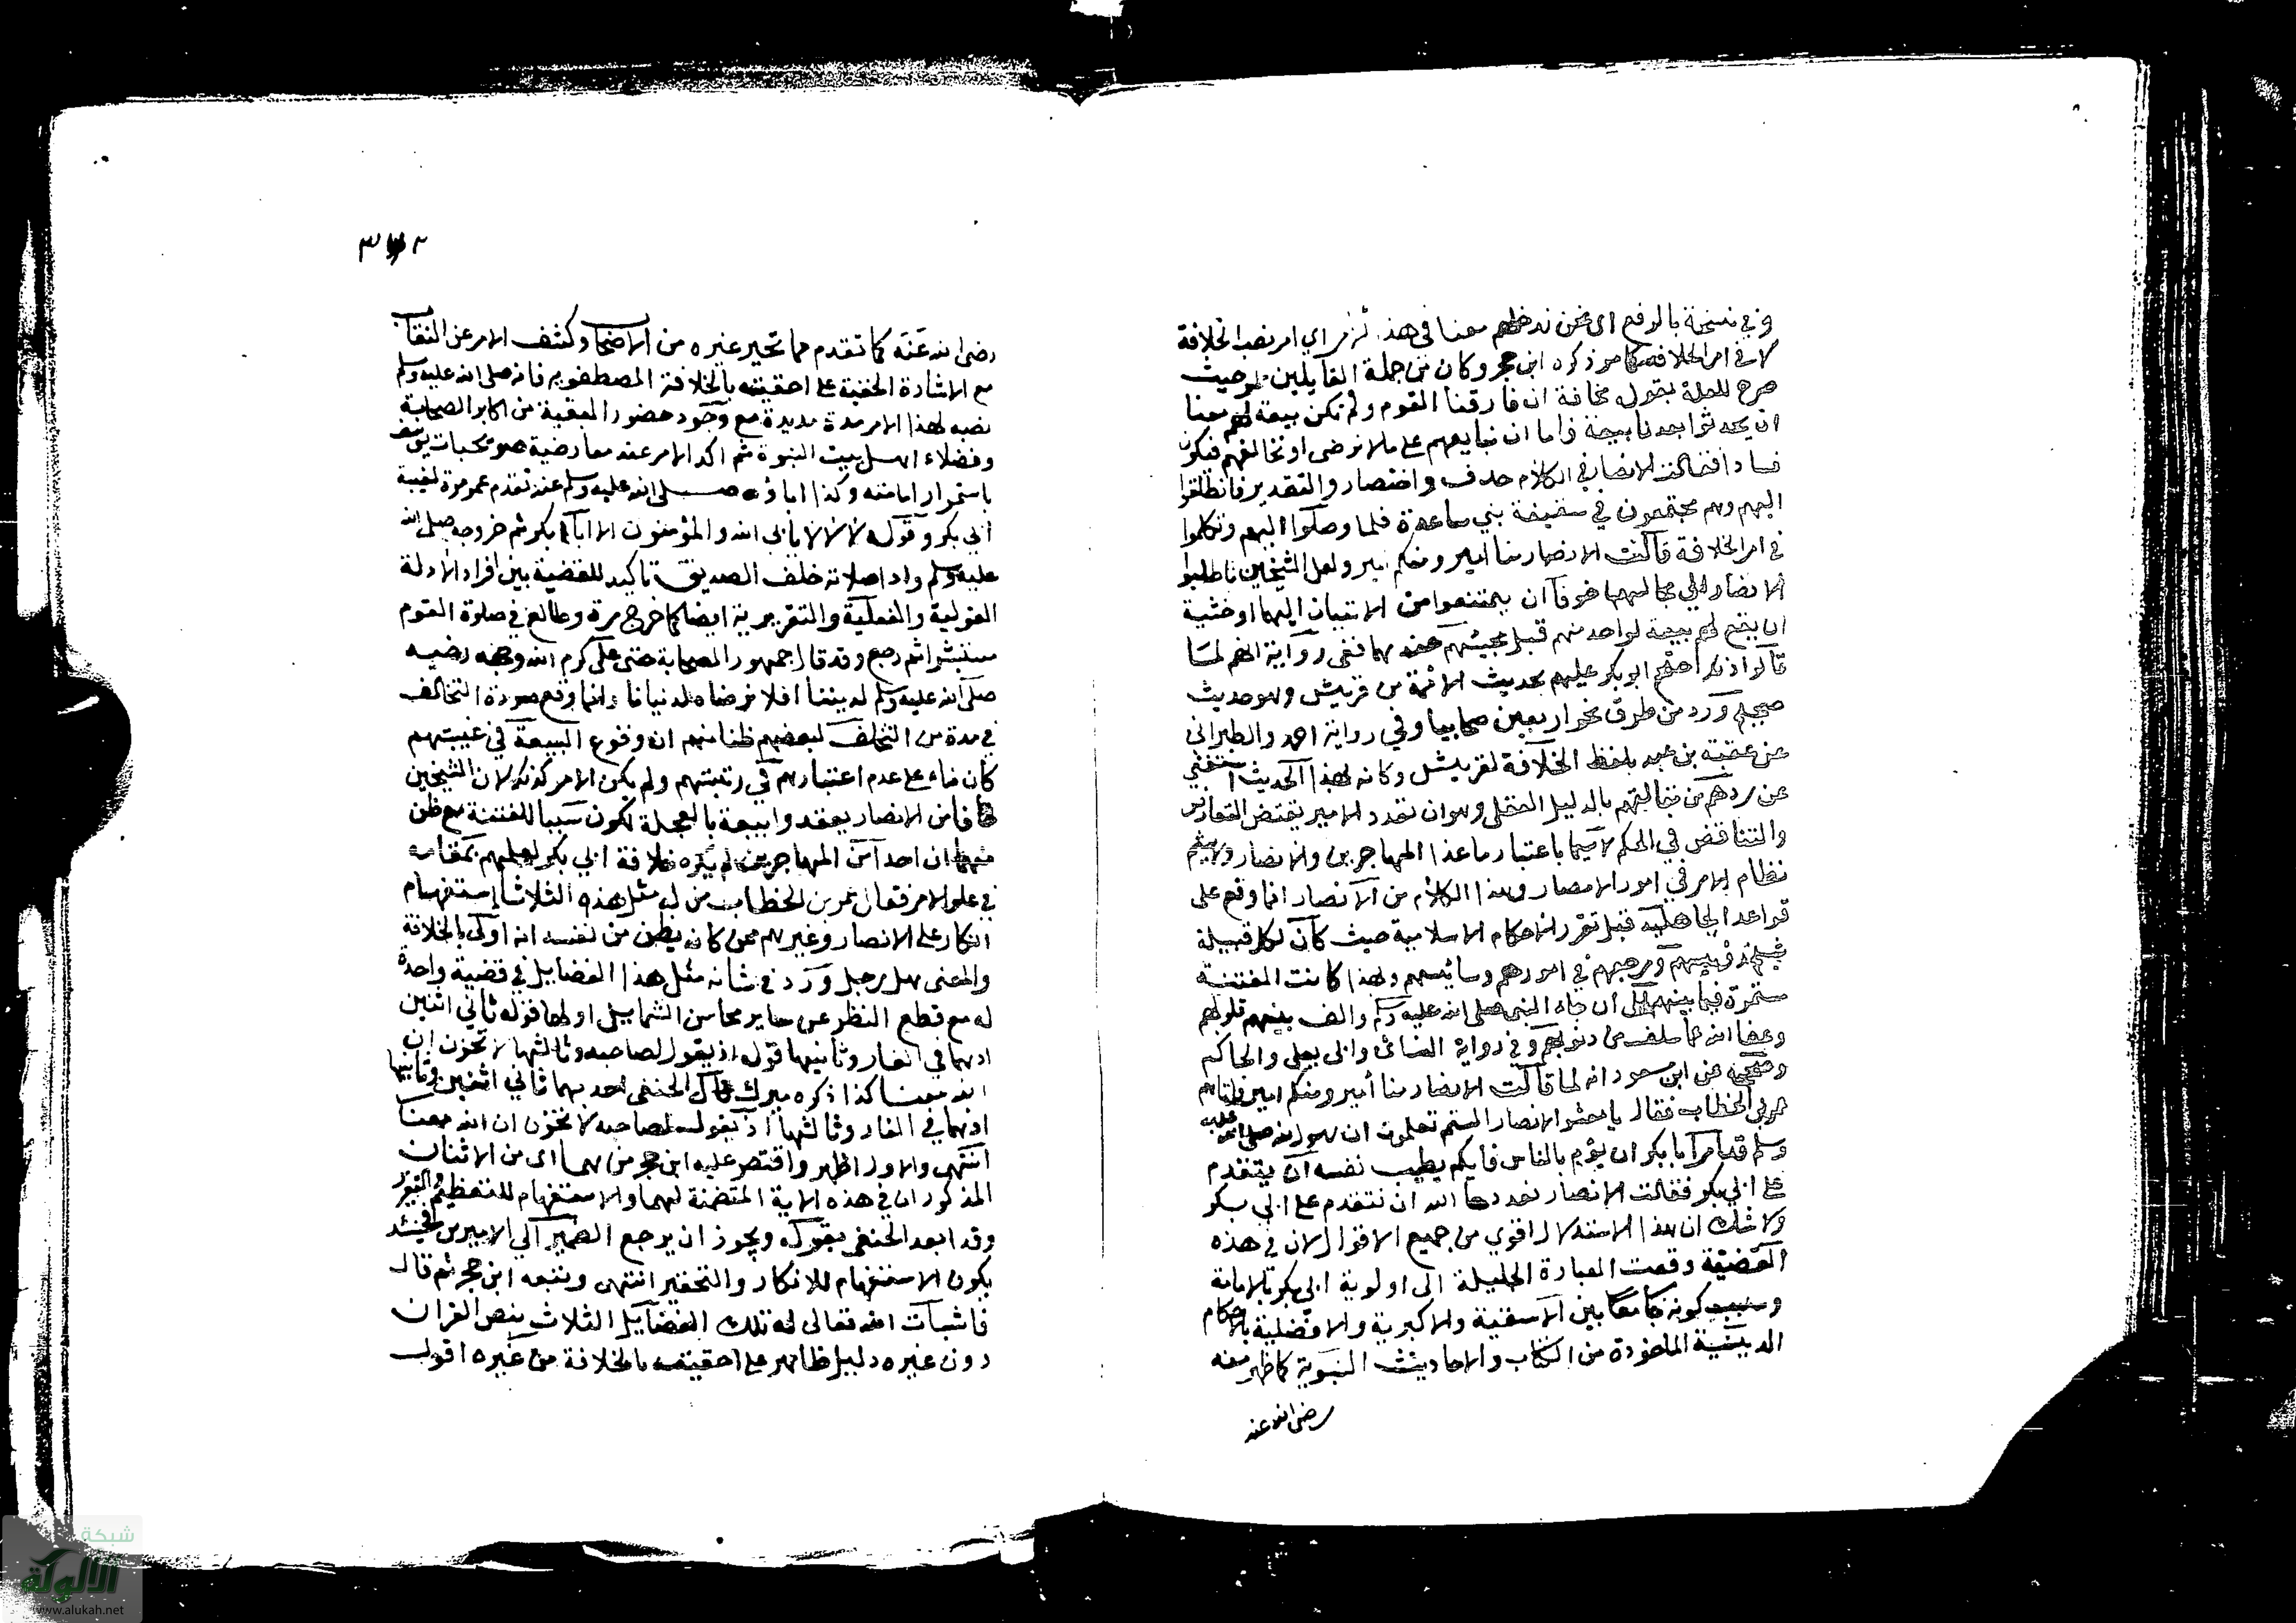 وفي نسخة بالرفع اى نحن ندخلهم معنا فى هذا الامر اي امر نصب الخلافة
لا في امر الخلافة كما مر ذكره ابن حجر وكان من جملة القايلين عمر حيث
صرح للعلة بقوله مخافة ان فارقنا القوم ولم تكن بيعة لهم معنا
ان يحدثوا بعدنا بيعة فاما ان نبايعهم على ما لا نرضى او نخالفهم فيكون
فساد افقالت الانصار في الكلام حذف واختصار والتقدير فانطلقوا
اليهم وهم مجتمعون في سقيفة بني ساعدة فلما وصلوا اليهم وتكلموا
في امر الخلافة قالت الانصار منا امير ومنكم امير ولعل الشيخين ما طلبوا
الانصار الي مجالسهما خوفا ان يمتنعوا من الاتيان اليهما او خشية
ان يقع لهم بيعة لواحد منهم قبل مجيئهم عندهما ففى رواية انهم لما
قالوا ذلك احتج ابو بكر عليهم بحديث الائمة من قريش وهو حديث
صحيح ورد من طرق نحو اربعين صحابيا وفي رواية احمد والطبرانى
عن عقبة بن عبد بلفظ الخلافة لقريش وكانه بهذا الحديث استغنى
عن ردهم عن مقالتهم بالدليل العقلى وهو ان تعدد الامير يقتضى التعارض
والتناقض في الحكم لا سيما باعتبار ما عدا المهاجرين والانصار ولا يتم
نظام الامر في امور الامصار وهذا الكلام من الانصار انما وقع على
قواعد الجاهلية قبل تقرر الاحكام الاسلامية حيث كان لكل قبيلة
شيخ ورئيسهم ومرجعهم في امورهم وسياستهم ولهذا كانت الفتنة
مستمرة فيما بينهم الى ان جاء النبى صلى الله عليه وسلم والف بينهم قلوبهم
وعفا الله عما سلف من ذنوبهم وفي رواية النسائى وابى يعلى والحاكم
وصححه عن ابن مسعود انه لما قالت الانصار منا أمير ومنكم امير فاتاهم
عمر بن الخطاب فقال يا معشر الانصار الستم تعلمون ان رسول الله صلى الله عليه
وسلم قد امر ابا بكر ان يؤم بالناس فايكم يطيب نفسه ان يتقدم
على ابي بكر فقالت الانصار نعوذ بالله ان نتقدم على ابي بكر
ولا شك ان هذا الاستدلال اقوي من جميع الاقوال لان في هذه
القضية وقعت العبارة الجليلة الى اولوية ابي بكر بالامامة
وسببه كونه جامعا بين الاسبقية والاكبرية والافضلية بالاحكام
الدينية الماخوذة من الكتاب والاحاديث النبوية كما ظهر منه
رضى الله عنه
رضى الله عنه كما تقدم مما تحير غيره من الاصحاب وكشف الامر عن النقاب
مع الاشارة الخفية على احقيته بالخلافة المصطفوية فانه صلى الله عليه وسلم
نصبه لهذا الامر مدة مديدة مع وجود حضور البقية من اكابر الصحابة
وفضلاء اهل بيت النبوة ثم اكد الامر عند معارضة صويحبات يوسف
باستمرار امامته وكذا اباؤه صلى الله عليه وسلم عند تقدم عمر مرة لغيبة
أبي بكر وقوله لا لا لا يأبى الله والمؤمنون الا ابا بكر ثم خروجه صلى الله
عليه وسلم واد اصلاته خلف الصديق تاكيد للقضية بين افراد الادلة
القولية والفعلية والتقريرية ايضا كما خرج مرة وطالع في صلوة القوم
مستبشرا ثم رجع وقد قال جمهور الصحابة حتى على كرم الله وجهه رضيه
صلى الله عليه وسلم لديننا افلا نرضاه لدنيانا وانما وقع صورة التخالف
في مدة من التخلف لبعضهم ظنا منهم ان وقوع البيعة في غيبتهم
كان بناء على عدم اعتبارهم في رتبتهم ولم يكن الامر كذلك لان الشيخين
خافا من الانصار يعقدوا بيعة بالعجلة تكون سببا للفتنة مع ظن
منهما ان احدا من المهاجرين لم يكره خلافة ابي بكر لعلمهم بمقامه
في علو الامر فقال عمر بن الخطاب من له مثل هذه الثلاث استفهام
انكار على الانصار وغيرهم ممن كان يظن من نفسه انه اولى بالخلافة
والمعنى هل رجل ورد في شانه مثل هذا الفضايل في قضية واحدة
له مع قطع النظر عن ساير محاسن الشمايل اولها قوله ثاني اثنين
اذ هما في الغار وثانيها قوله اذ يقول لصاحبه وثالثها لا تحزن ان
الله معنا كذا ذكره ميرك وقال الحنفى احدهما ثاني اثنين وثانيها
اذ هما في الغار وثالثها اذ يقول لصاحبه لا تحزن ان الله معنا
انتهى والاول اظهر واقتصر عليه ابن حجر من هما اى من الاثنان
المذكوران في هذه الاية المتضمنة لهما والاستفهام للتعظيم والتقرير
وقد ابعد الحنفى بقوله ويجوز ان يرجع الضمير الي الاميرين فحينئذ
يكون الاستفهام للانكار والتحقير انتهى وتبعه ابن حجر ثم قال
فاثبات الله تعالى له تلك الفضايل الثلاث بنص القران
دون غيره دليل ظاهر على احقيته بالخلافة من غيره اقول
شبكة
الألوكة
www.alukah.net